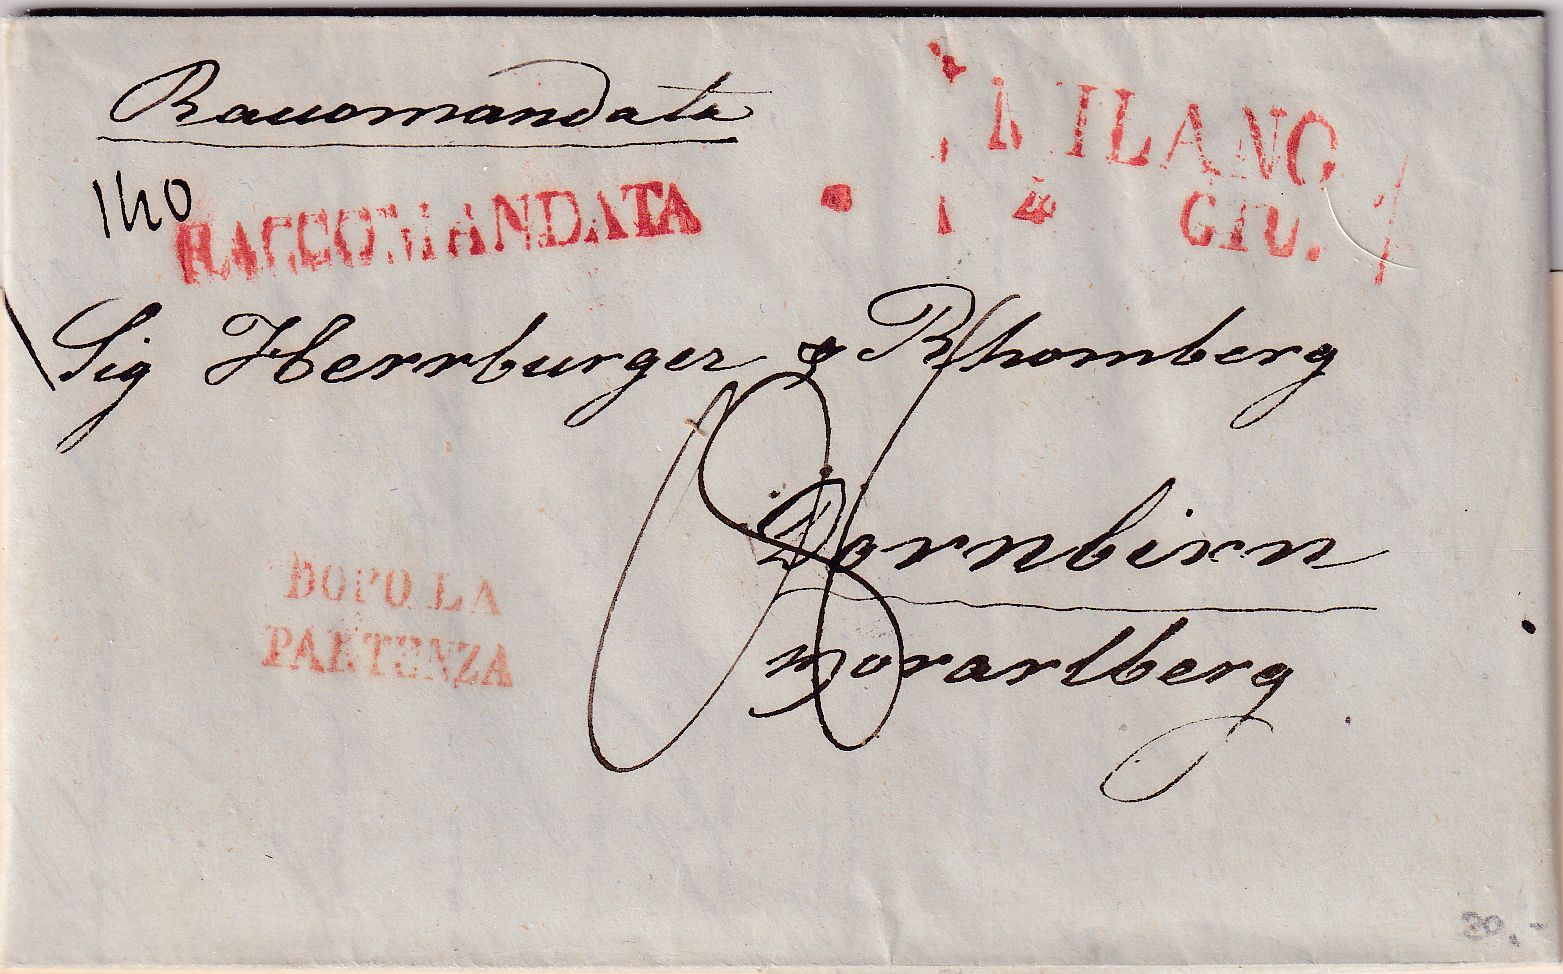 Raccomandata
MILANO
4 GIU.
140
RACCOMANDATA
Sig Herrburger & Rhomberg
Dornbirn
Vorarlberg
DOPO LA
PARTENZA
20,-